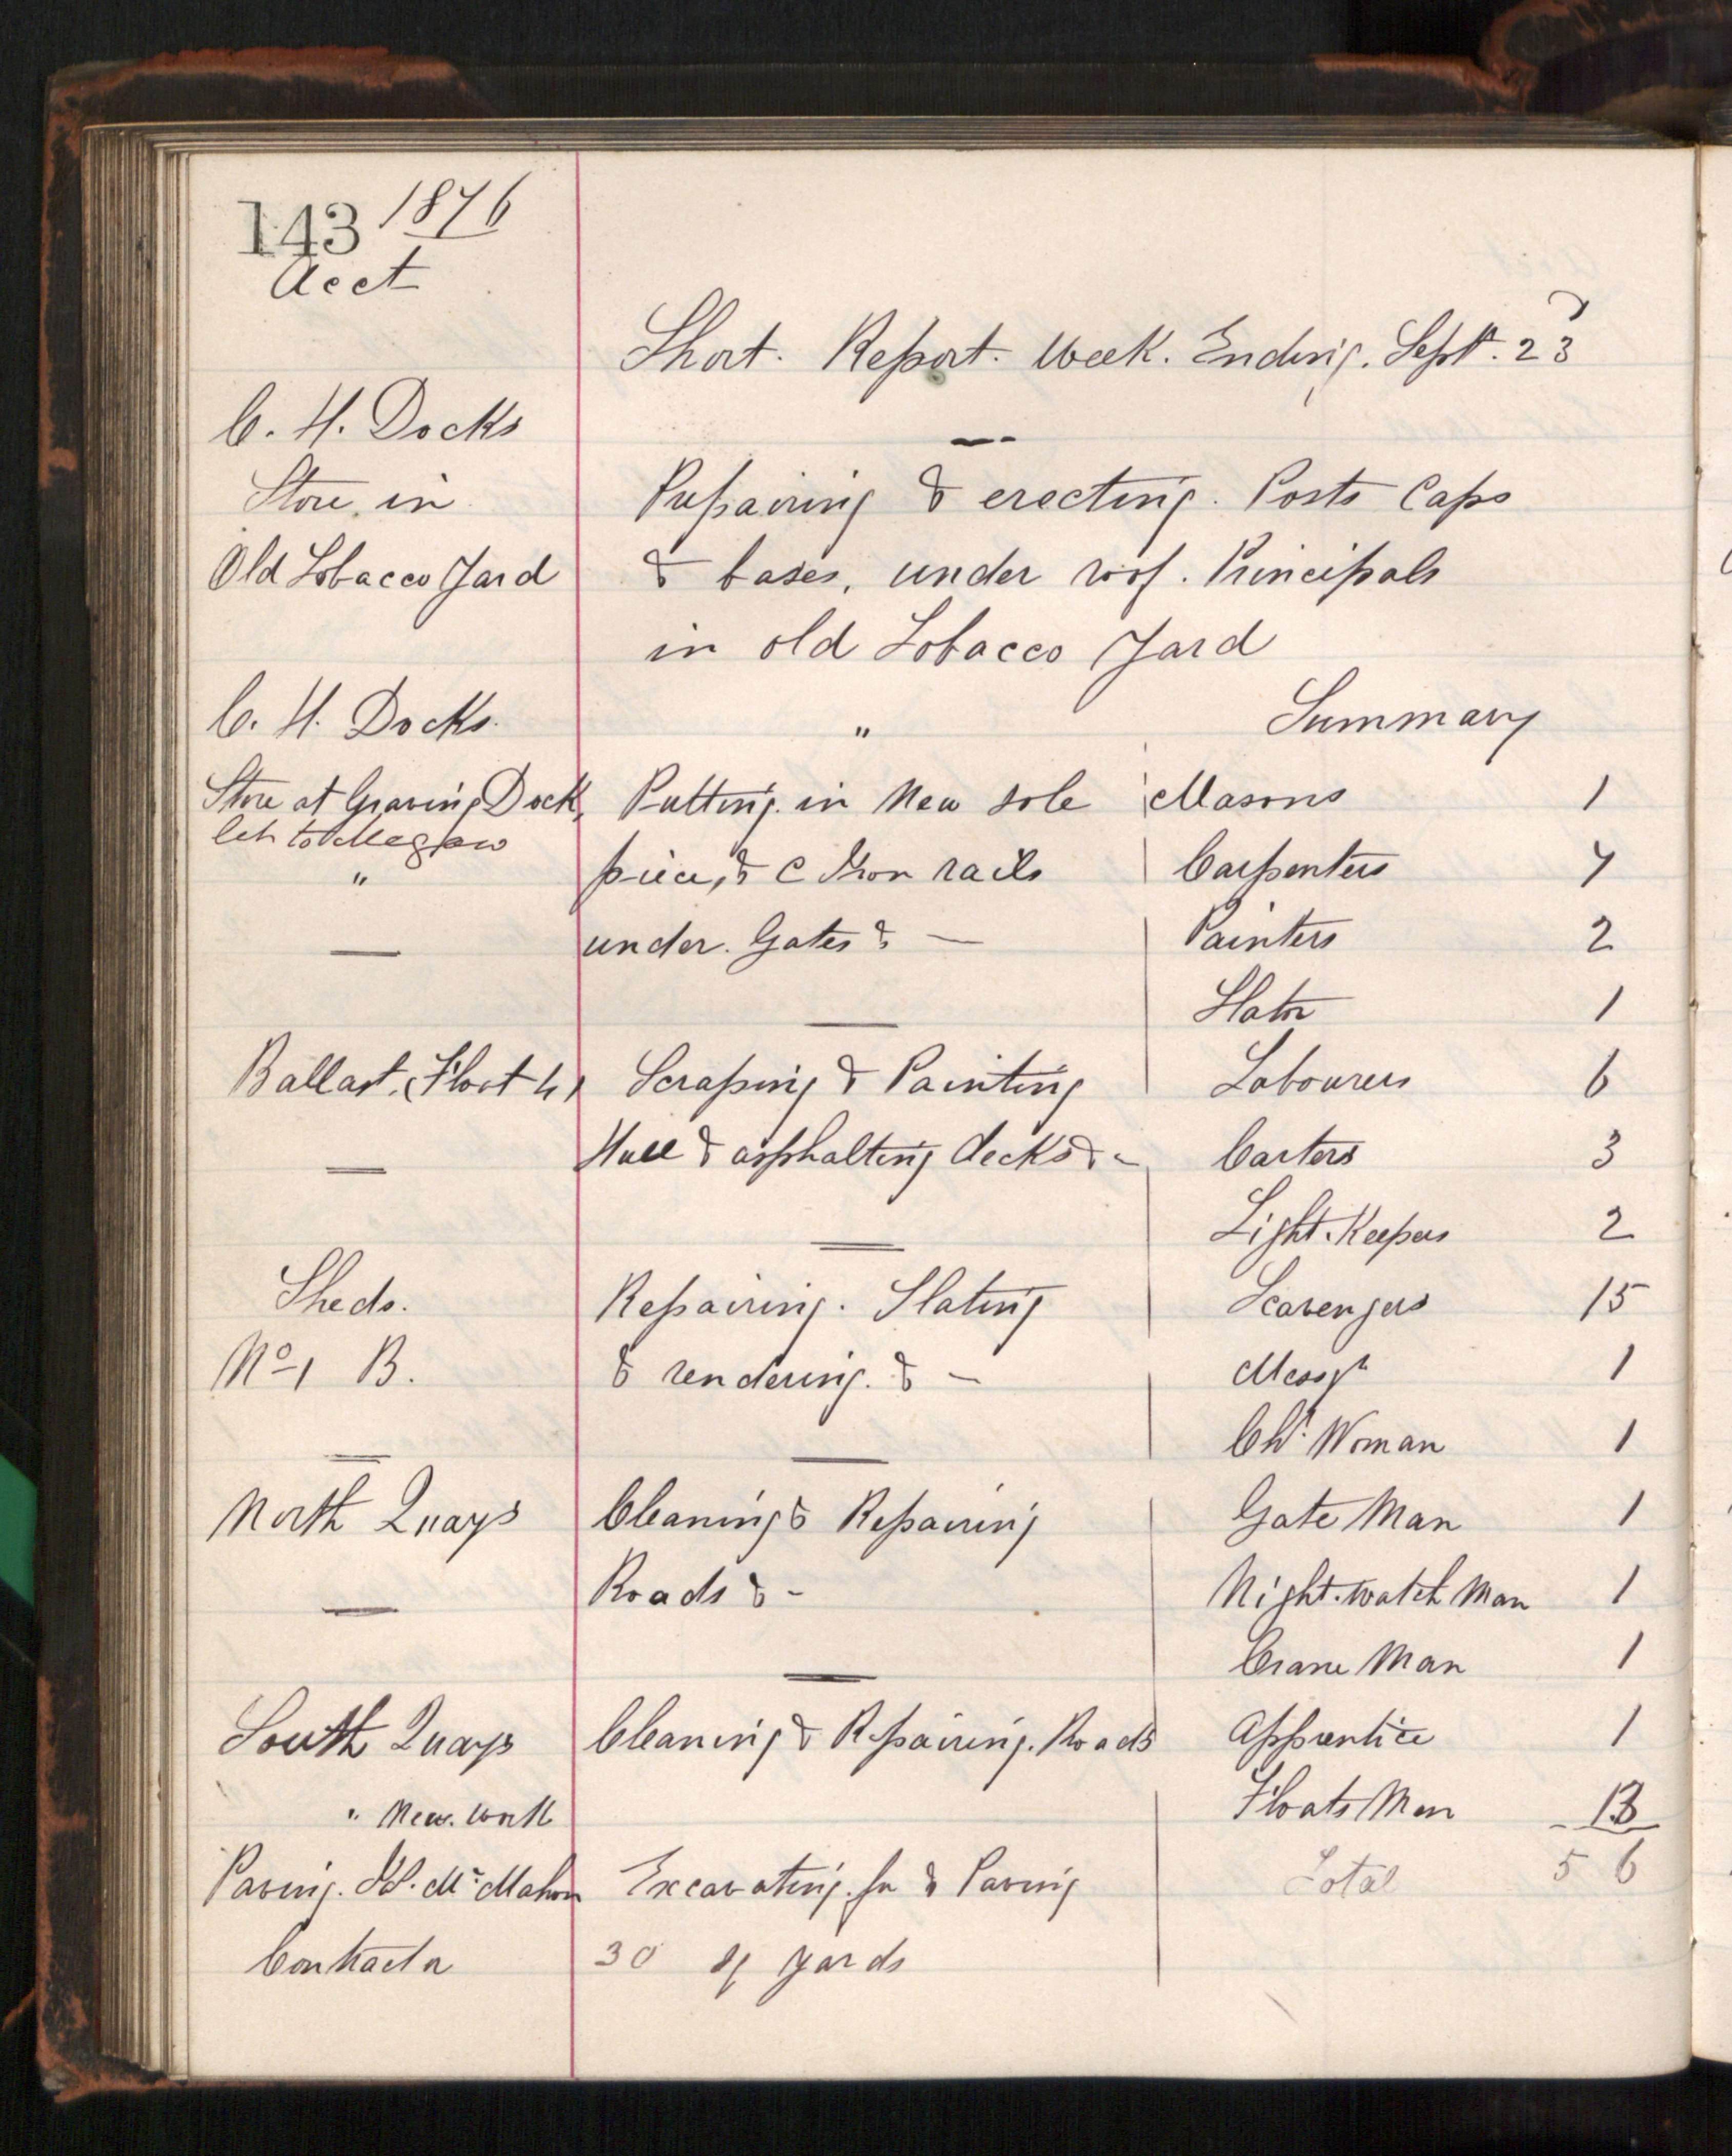 143 1876
Acct
Short. Report. Week. Ending. Sept. 23
C. H. Docks
Store in
Old Tobacco Yard
Preparing & erecting. Posts Caps
& bases, under roof. Principals
in old Tobacco Yard
C. H. Docks.
Store at Graving Dock,
let to Megaw
"
"
Putting in New sole
piece, & C Iron rails
under. Gates & —
Ballast. (Float 4)
Scraping & Painting
Hull & asphalting decks & -
Sheds.
No 1 B.
Repairing. Slating
& rendering. & —
North Quays
Cleaning & Repairing
Roads & -
South Quays
Cleaning & Repairing. Roads
" New. Work
Paving. McMahon
Contractor
Excavating for & Paving
30 sq yards
Summary
Masons 1
Carpenters 7
Painters 2
Slater 1
Labourers 6
Carters 3
Light. Keepers 2
Scavengers 15
Messgr 1
Chr. Woman 1
Gate Man 1
Night. watch Man 1
Crane Man 1
Apprentice 1
Floats Men 13
Total 56